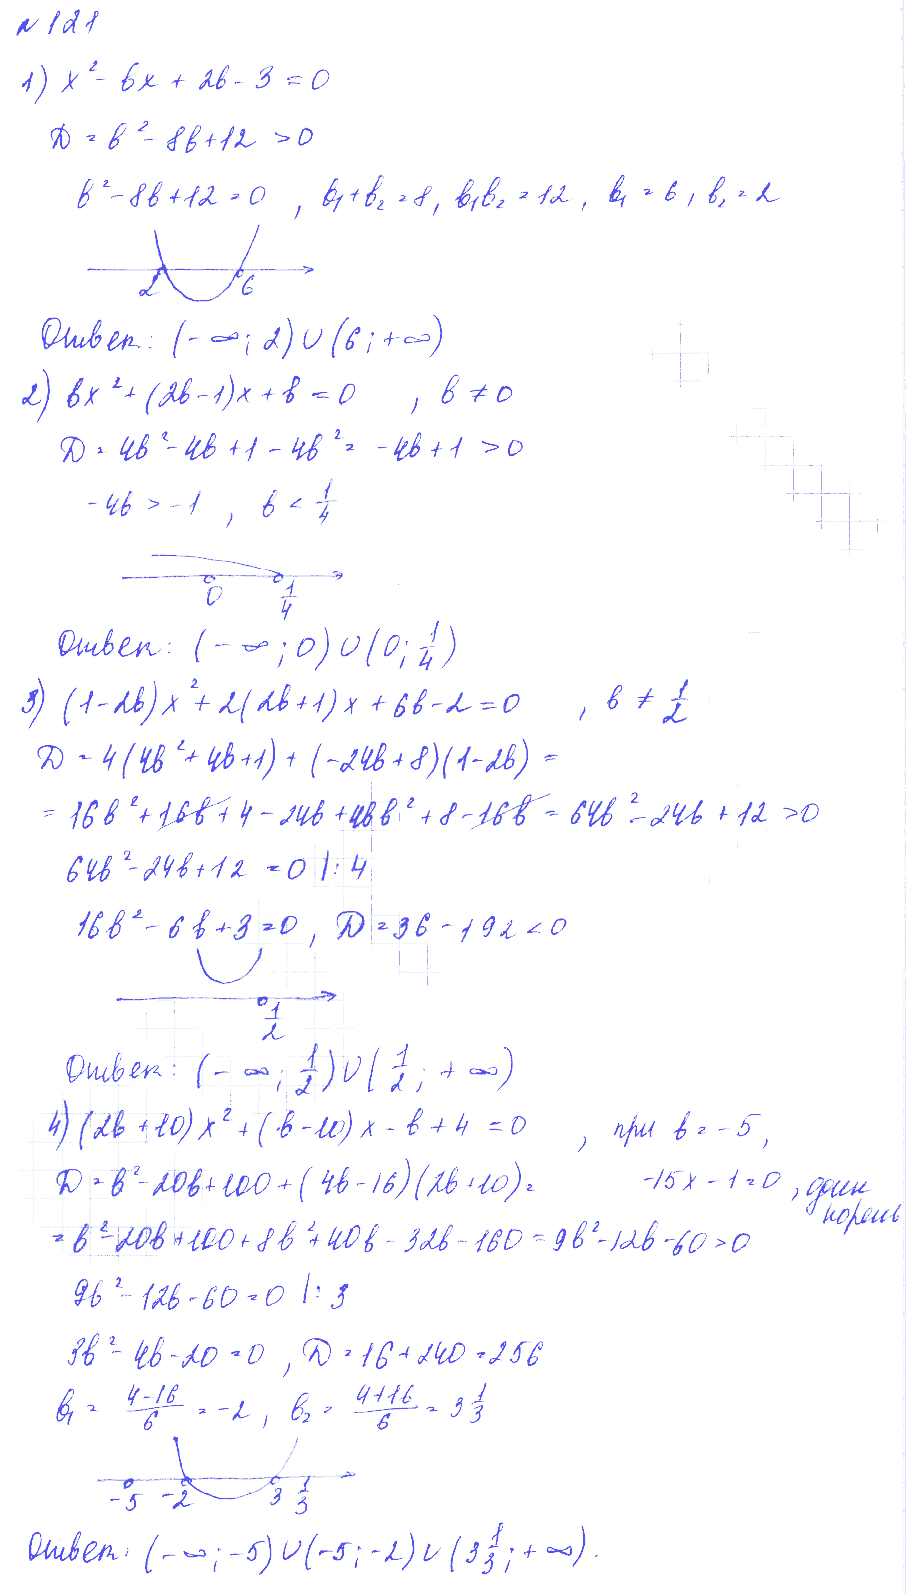 № 121
1) x² - bx + 2b - 3 = 0
D = b² - 8b + 12 > 0
b² - 8b + 12 = 0 , b₁ + b₂ = 8, b₁b₂ = 12, b₁ = 6, b₂ = 2
2 6
Ответ: (-∞; 2) ∪ (6; +∞)
2) bx² + (2b-1)x + b = 0 , b ≠ 0
D = 4b² - 4b + 1 - 4b² = -4b + 1 > 0
-4b > -1 , b < 1/4
0 1/4
Ответ: (-∞; 0) ∪ (0; 1/4)
3) (1-2b)x² + 2(2b+1)x + 6b - 2 = 0 , b ≠ 1/2
D = 4(4b² + 4b + 1) + (-24b + 8)(1-2b) =
= 16b² + 16b + 4 - 24b + 48b² + 8 - 16b = 64b² - 24b + 12 > 0
64b² - 24b + 12 = 0 |: 4
16b² - 6b + 3 = 0 , D = 36 - 192 < 0
1/2
Ответ: (-∞; 1/2) ∪ (1/2; +∞)
4) (2b+10)x² + (b-10)x - b + 4 = 0 , при b = -5,
D = b² - 20b + 100 + (4b-16)(2b+10) = -15x - 1 = 0 , один корень
= b² - 20b + 100 + 8b² + 40b - 32b - 160 = 9b² - 12b - 60 > 0
9b² - 12b - 60 = 0 |: 3
3b² - 4b - 20 = 0 , D = 16 + 240 = 256
b₁ = (4-16)/6 = -2 , b₂ = (4+16)/6 = 3 1/3
-5 -2 3 1/3
Ответ: (-∞; -5) ∪ (-5; -2) ∪ (3 1/3; +∞).